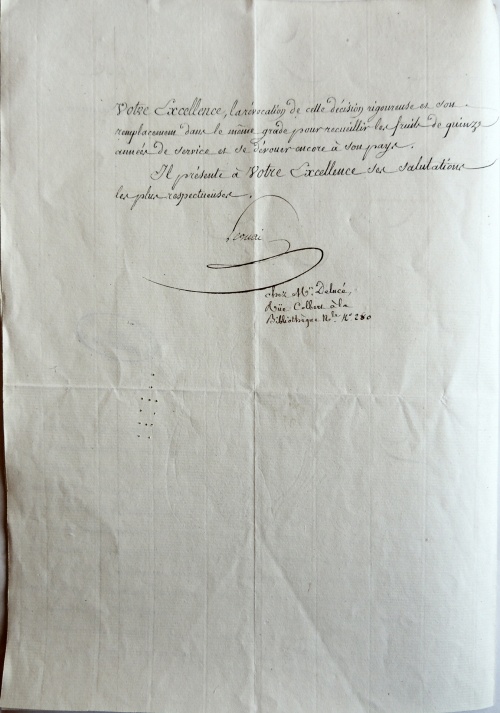 Votre Excellence, la révocation de cette décision rigoureuse et son
remplacement dans le même grade pour recueillir les fruits de quinze
années de service et se dévouer encore à son pays.
Il présente à Votre Excellence ses salutations
les plus respectueuses.
chez Mr. Delucé,
Rüe Colbert à la
Bibliothèque N.le N.o 280